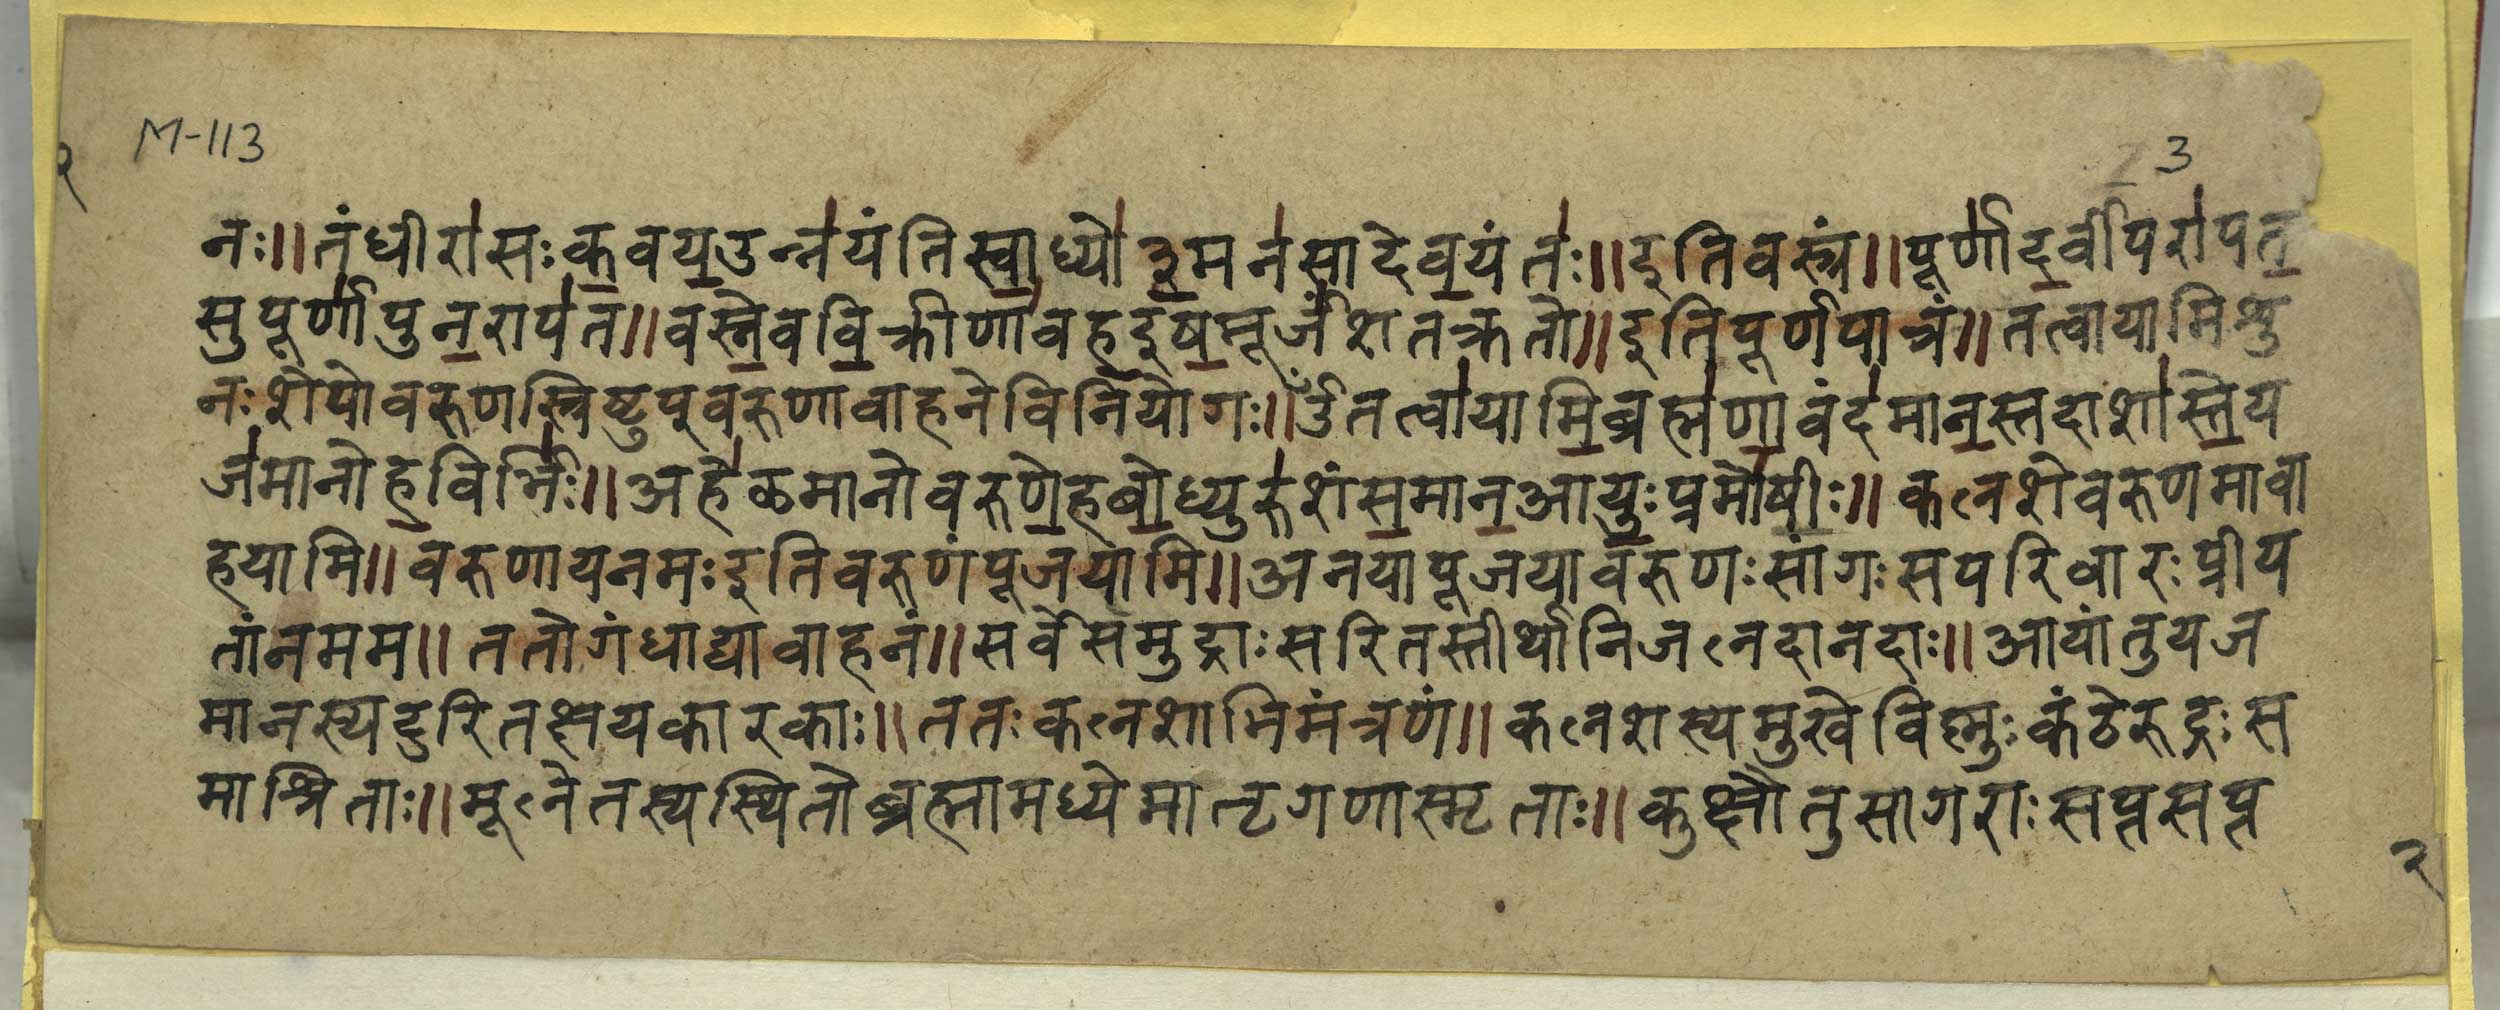 M-113
3
२
नः॥तंधीरा॑सःक॒वय॒उन्न॑यंतिस्वा॒ध्यो॑३॒मन॑सादेव॒यंत॑ः॥इतिवस्त्रं॥पूर्णा॑द॒र्वीपरा॑पत॒
सुपू॑र्णा॒पुन॒राप॑त॥वस्ने॒ववि॒क्रीणा॑वह॒इष॒मूर्जं॑शतक्रतो॥इतिपूर्णपात्रं॥तत्वायामिशु
नःशेपोवरुणस्त्रिष्टुप्वरुणावाहनेविनियोगः॥ॐतत्वा॑यामि॒ब्रह्म॑णा॒वंद॑मान॒स्तदाशा॑स्ते॒य
ज॑मानोह॒विर्भि॑ः॥अहे॑ळमानोवरुणे॒हबो॒ध्युरु॑शंस॒मान॒आयु॒ःप्रमो॑षीः॥कलशेवरुणमावा
हयामि॥वरुणायनमःइतिवरुणंपूजयामि॥अनयापूजयावरुणःसांगःसपरिवारःप्रीय
तांनमम॥ततोगंधाद्यावाहनं॥सर्वेसमुद्राःसरितस्तीर्थानिजलदानदाः॥आयांतुयज
मानस्यदुरितक्षयकारकाः॥ततःकलशाभिमंत्रणं॥कलशस्यमुखेविष्णुःकंठेरुद्रःस
माश्रिताः॥मूलेतस्यस्थितोब्रह्मामध्येमातृगणास्मृताः॥कुक्षौतुसागराःसप्तसप्त
२